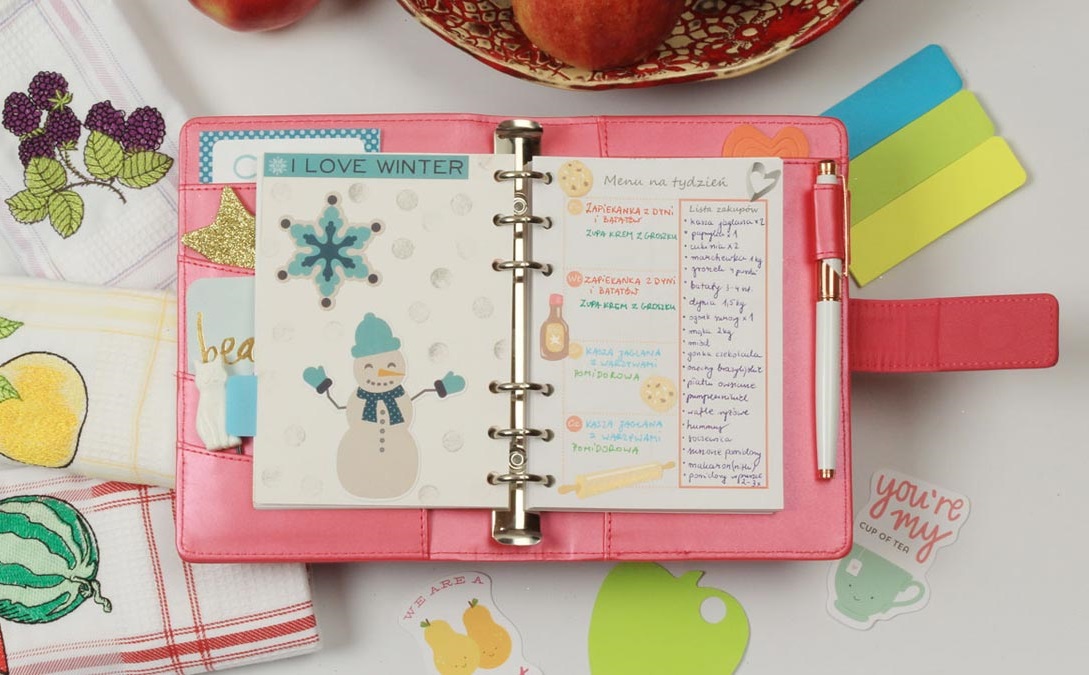 I LOVE WINTER
bea
Menu na tydzień
ZAPIEKANKA Z DYNI
i BATATÓW
ZUPA KREM Z GROSZKU
ZAPIEKANKA Z DYNI
i BATATÓW
ZUPA KREM Z GROSZKU
KASZA JAGLANA
Z WARZYWAMI
POMIDOROWA
Cz
KASZA JAGLANA
Z WARZYWAMI
POMIDOROWA
Lista zakupów
• kasza jaglana x2
• papryka x1
• cukinia x2
• marchewka 1kg
• groszek
• bataty 3-4 szt.
• dynia 1,5kg
• x1
• mąka 2kg
• miód
• gorzka czekolada
• orzechy brazylijskie
• płatki owsiane
• pumpernikiel
• wafle ryżowe
• hummus
• soczewica
• suszone pomidory
• makaron
• pomidory w puszce
2-3x
you're
my
CUP OF TEA
WE ARE A